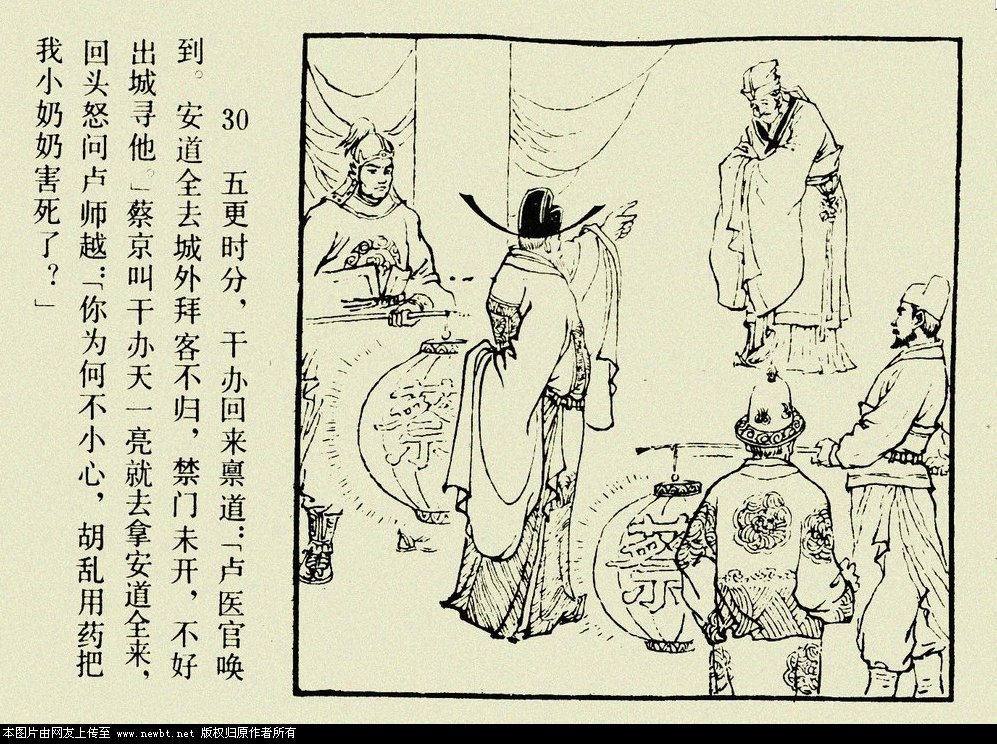 30 五更时分，干办回来禀道：“卢医官唤
到。安道全去城外拜客不归，禁门未开，不好
出城寻他。”蔡京叫干办天一亮就去拿安道全来，
回头怒问卢师越：“你为何不小心，胡乱用药把
我小奶奶害死了？”
蔡
蔡
本图片由网友上传至 www.newbt.net 版权归原作者所有